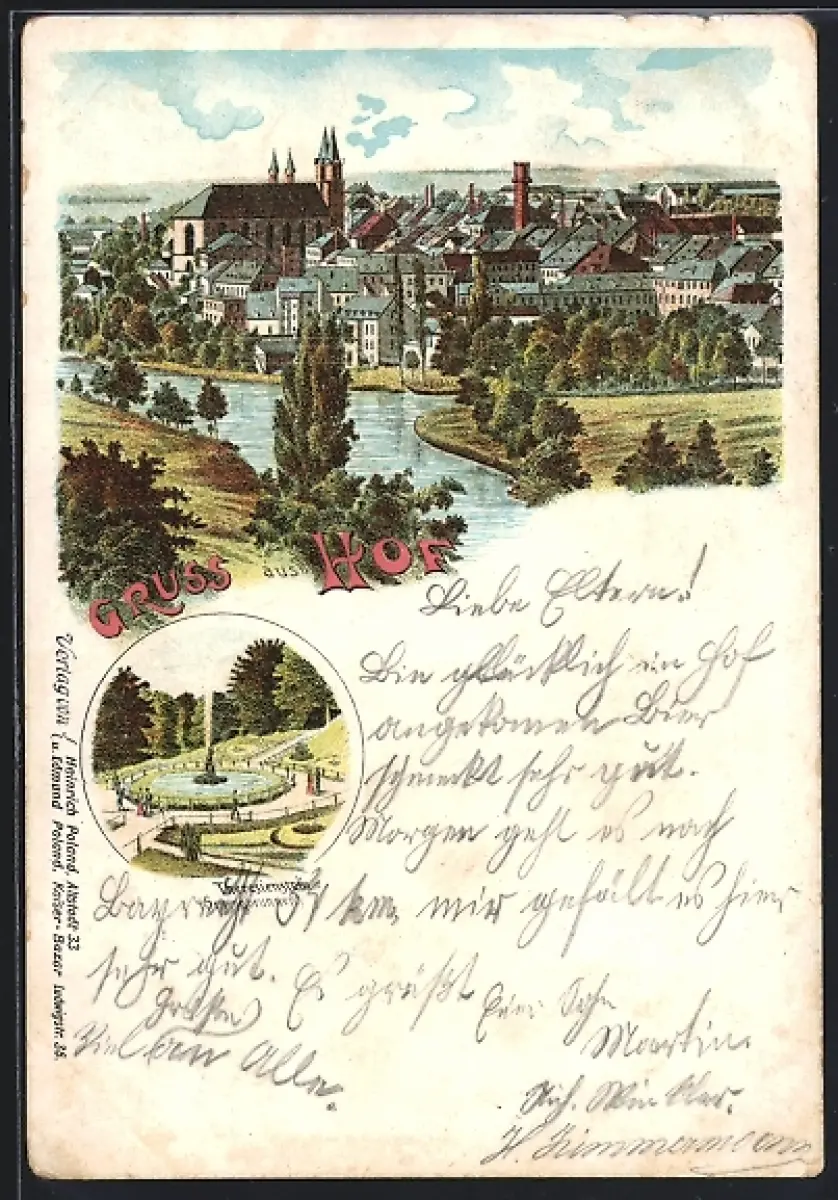 GRUSS aus HOF
Liebe Eltern!
Bin glücklich in Hof
angekomen Bier
schmeckt sehr gut.
Morgen geht es nach
Bayreuth 57 km mir gefält es hier
sehr gut. Es grüßt Euer Sohn
Martin.
Viel Grüße an Alle.
Rich. Winkler.
H. Zimmermann
Theresienstein
Verlag von { Heinrich Poland, Altstadt 33
u. Edmund Poland, Kaiser-Bazar Ludwigstr. 36.